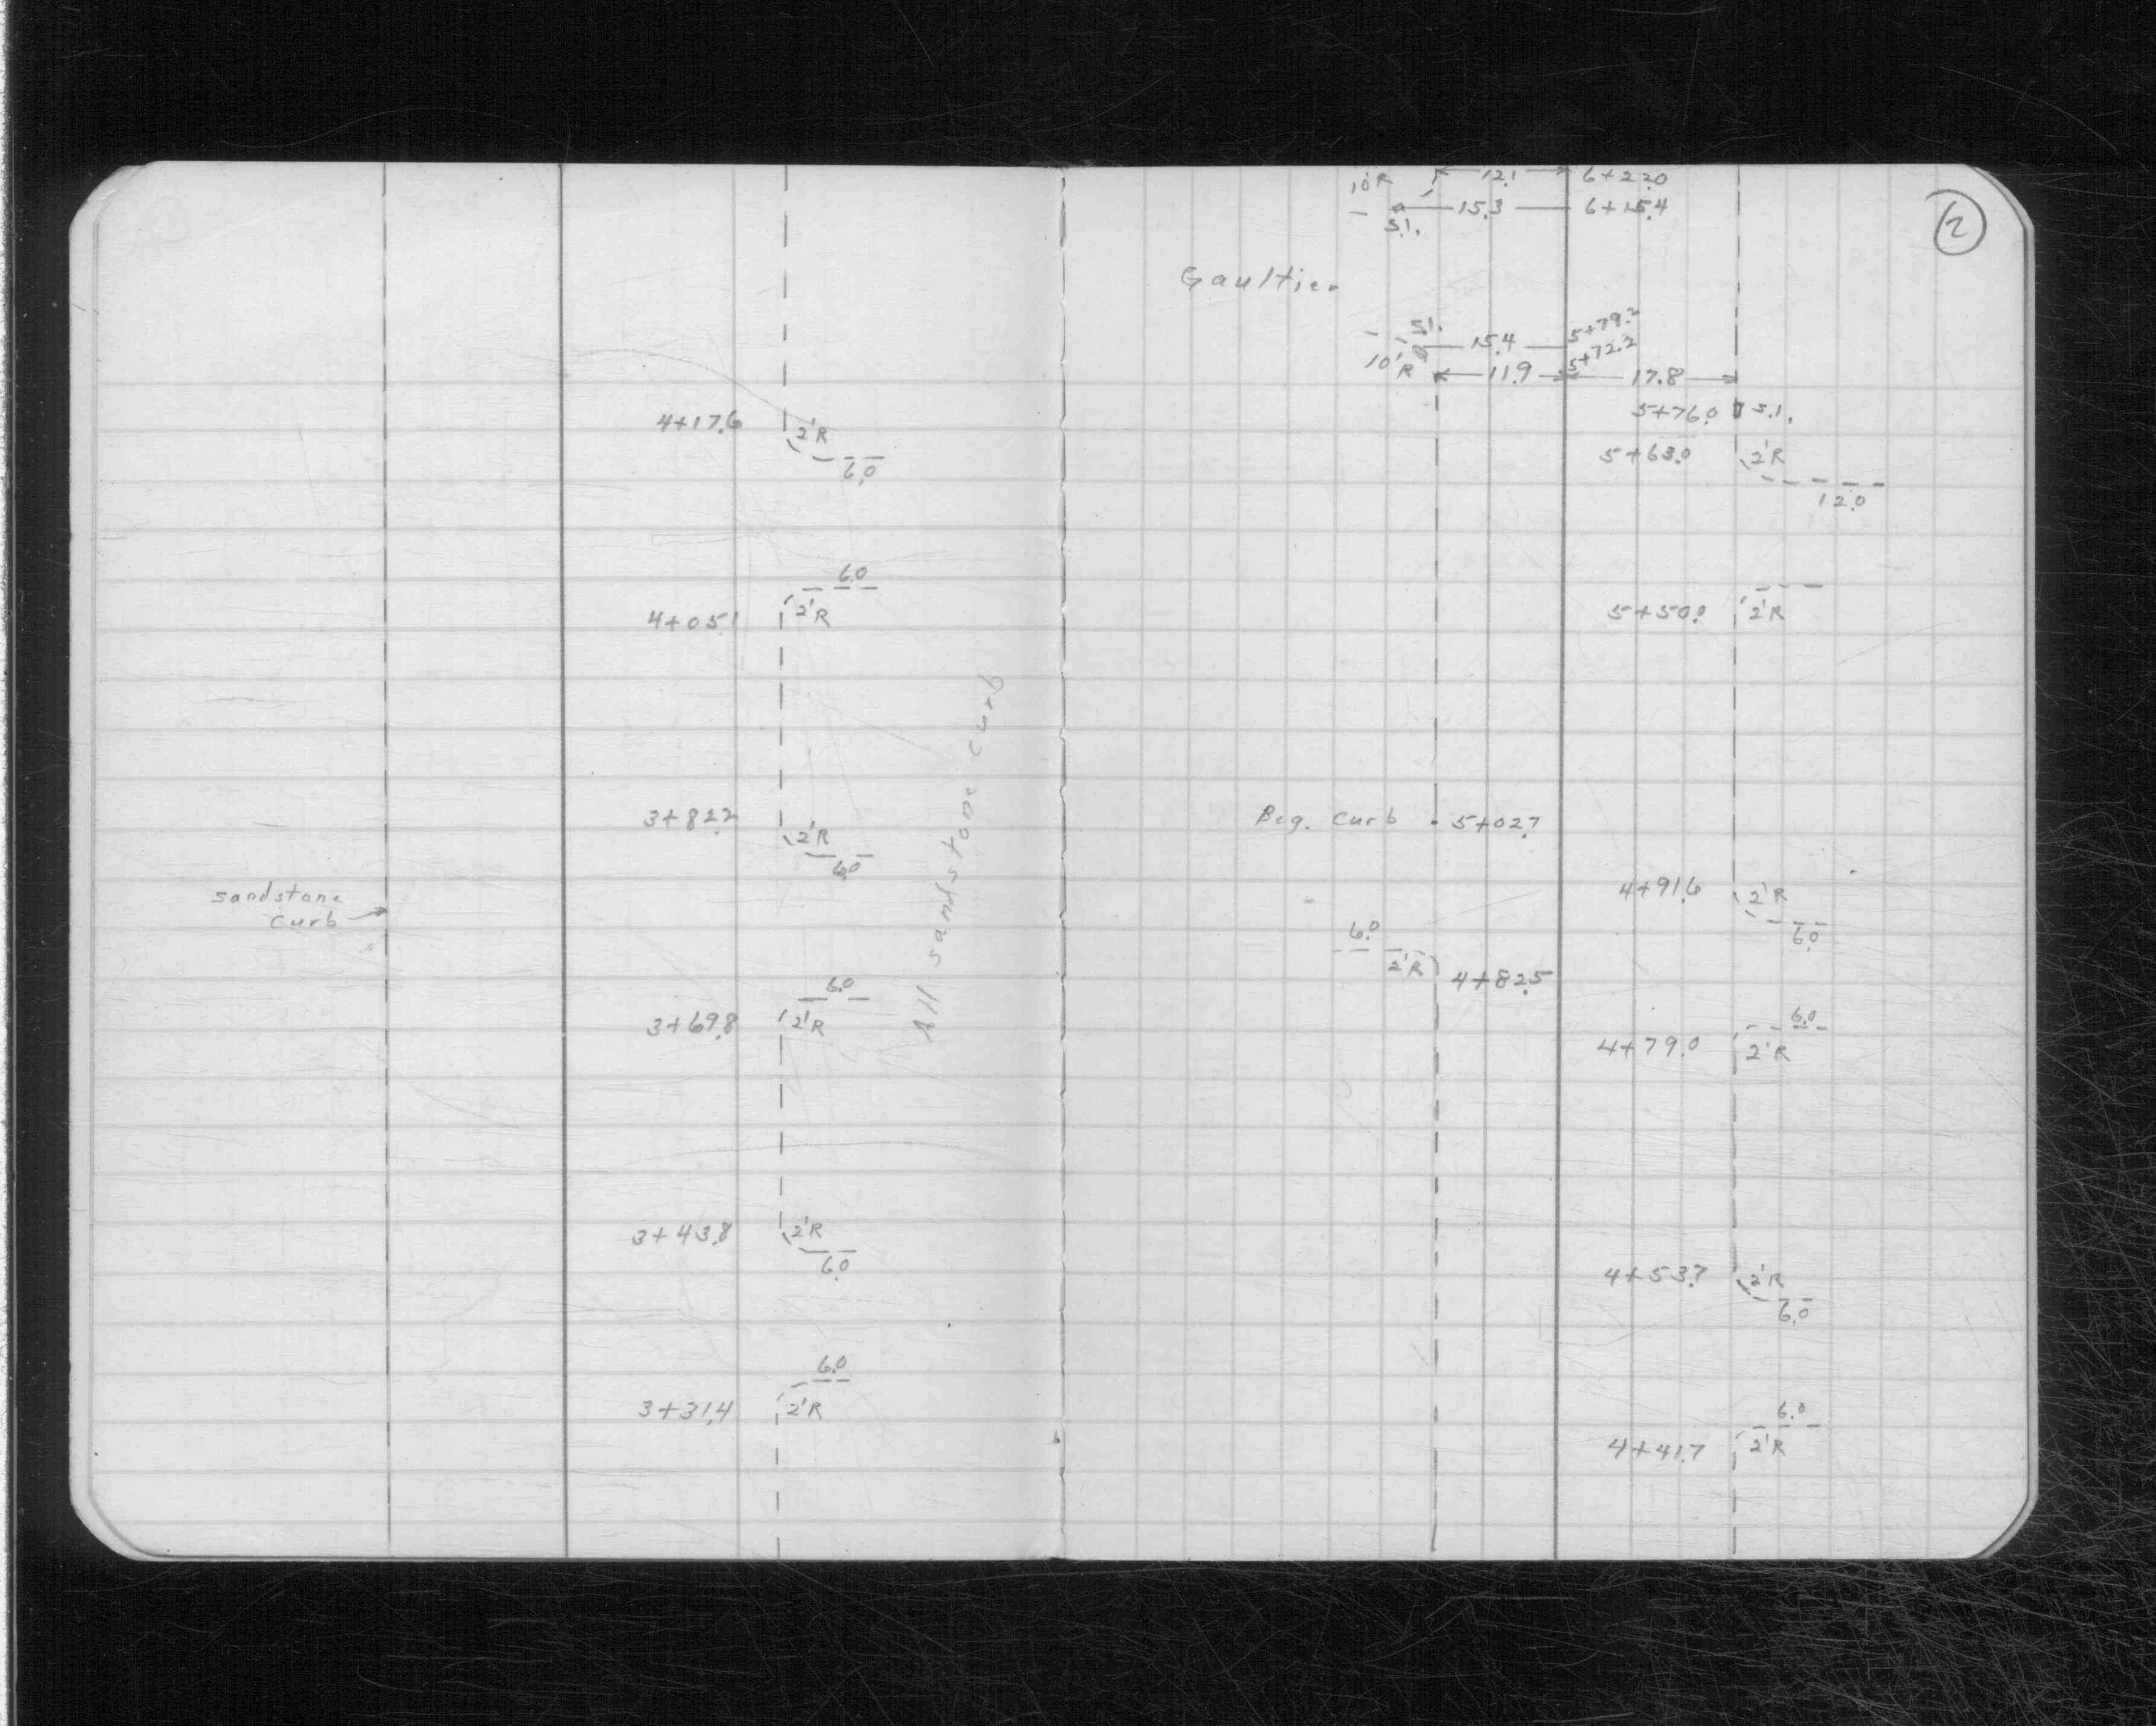 4+17.6 2'R
6.0
6.0
4+05.1 2'R
3+82.2 2'R
6.0
sandstone
curb
All sandstone curb
6.0
3+69.8 2'R
3+43.8 2'R
6.0
6.0
3+31.4 2'R
2
10'R 12.1 6+22.0
15.3 6+15.4
S.I.
Gaultier
S.I. 15.4 5+79.2
10'R 11.9 5+72.2 17.8
5+76.0 S.I.
5+63.0 2'R
12.0
5+50.0 2'R
Beg. Curb 5+02.7
4+91.6 2'R
6.0
6.0
2'R 4+82.5
6.0
4+79.0 2'R
4+53.7 2'R
6.0
6.0
4+41.7 2'R